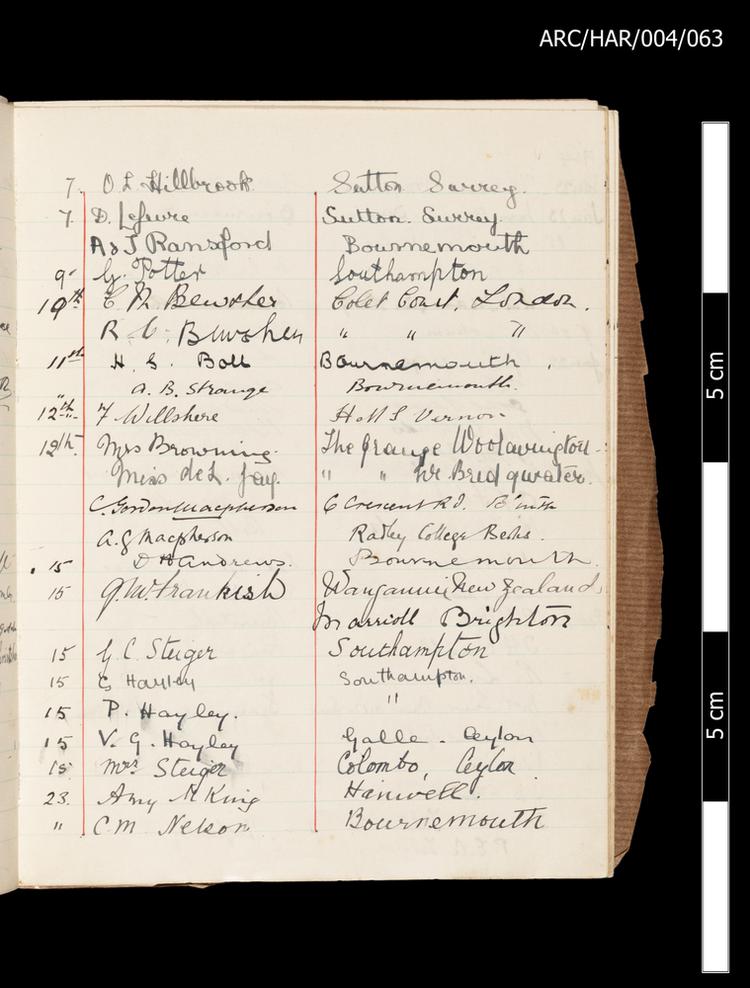 ARC/HAR/004/063
7. O. L. Hillbrook Sutton Surrey.
7. D. Lefevre Sutton. Surrey.
A & J Ransford Bournemouth
9 G. Potter Southampton
10th E N Bewsher Colet Court, London.
R C Bewsher " " "
11th H. S. Boll Bournemouth.
A. B. Strange Bournemouth.
12th F Willshere Vernon
12th. Mrs Browning. The Grange Woolavington
Miss de L. Jay. " " Nr. Bridgwater.
C. Gordon Macpherson 6 Crescent Rd. B'mth
A. G Macpherson Radley College Berks.
15 D H Andrews. Bournemouth.
15 J. W. Frankish Wanganui New Zealand
Marriott Brighton
15 G C Steiger Southampton
15 Hayley Southampton.
15 P. Hayley. "
15 V. G. Hayley Galle. Ceylon
15 Mrs Steiger Colombo, Ceylon
23. Amy M King Hanwell.
" C. M. Nelson Bournemouth
5 cm
5 cm